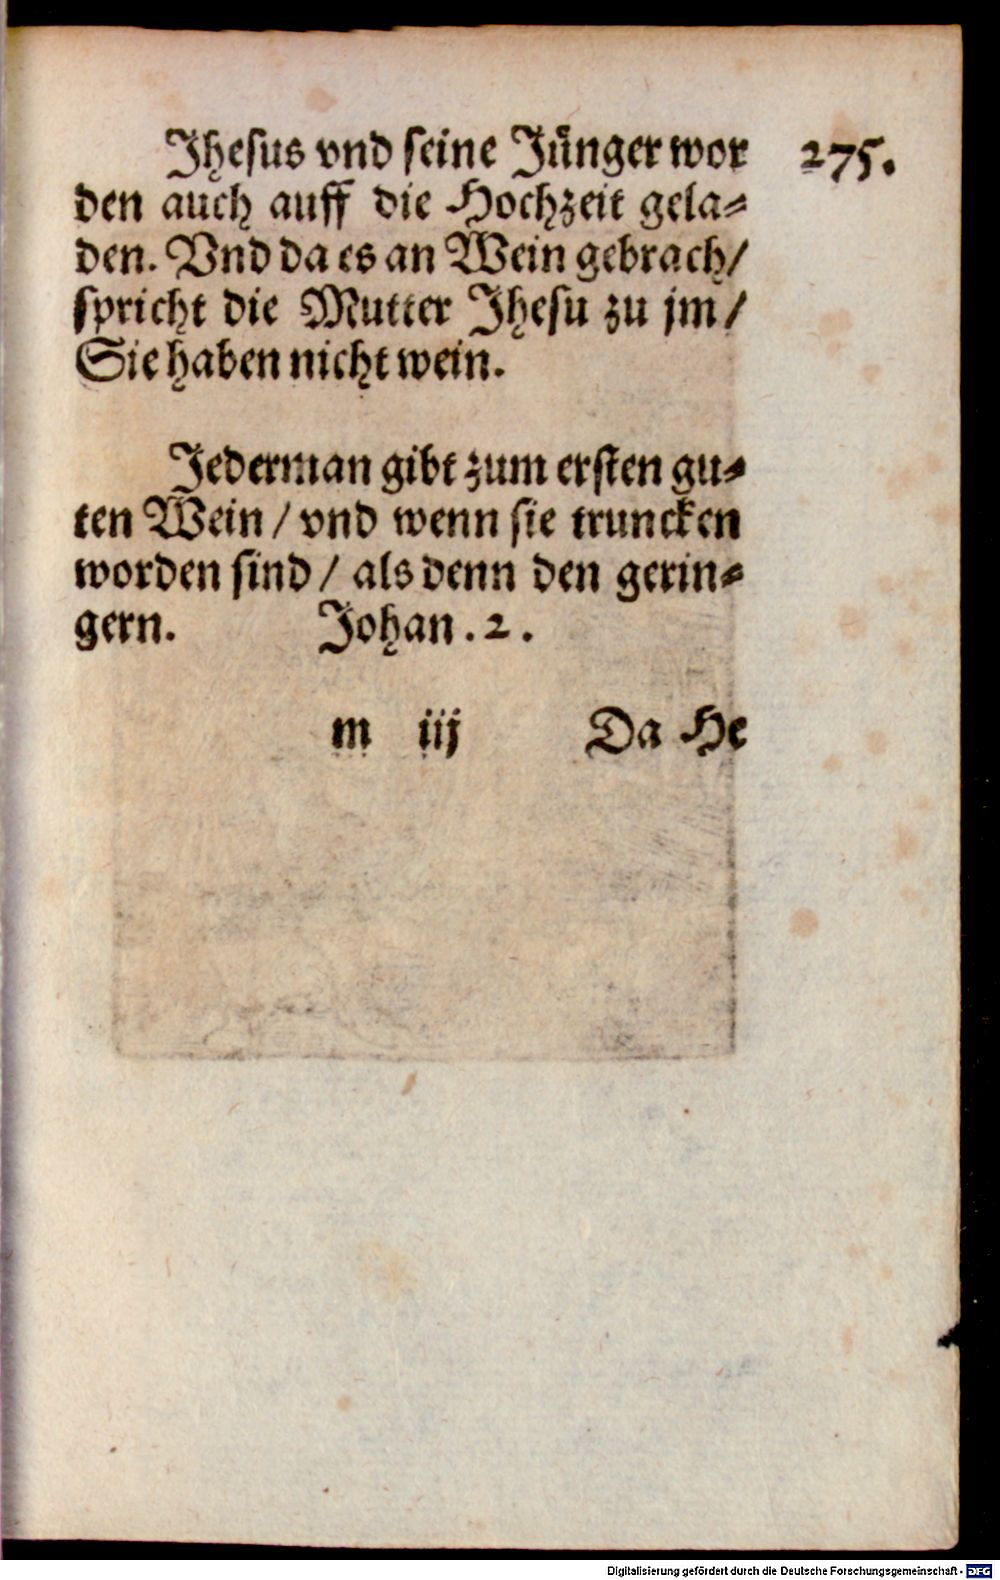 Jhesus vnd seine Jünger wor 275.
den auch auff die Hochzeit gela-
den. Vnd da es an Wein gebrach/
spricht die Mutter Jhesu zu jm/
Sie haben nicht wein.
Jederman gibt zum ersten gu-
ten Wein/ vnd wenn sie truncken
worden sind/ als denn den gerin-
gern. Johan. 2.
m iij Da He
Digitalisierung gefördert durch die Deutsche Forschungsgemeinschaft - DFG